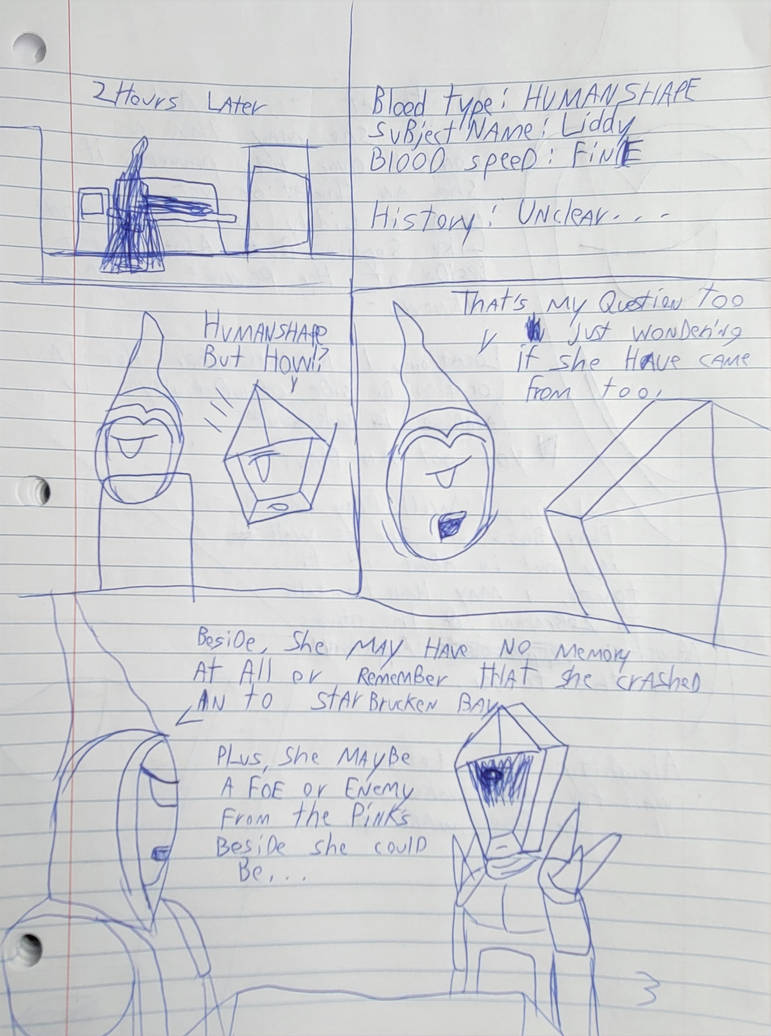 2 Hours Later
Blood type: HUMANSHAPE
Subject Name: Liddy
Blood speed: Fine
History: Unclear...
HUMANSHAPE
But How!?
That's my Question too
just wondering
if she Have came
from too.
Beside, She may Have no memory
At All or Remember that she crashed
in to StarBrucken Bay
Plus, She Maybe
A Foe or Enemy
From the Pinks
Beside she could
Be,...
3